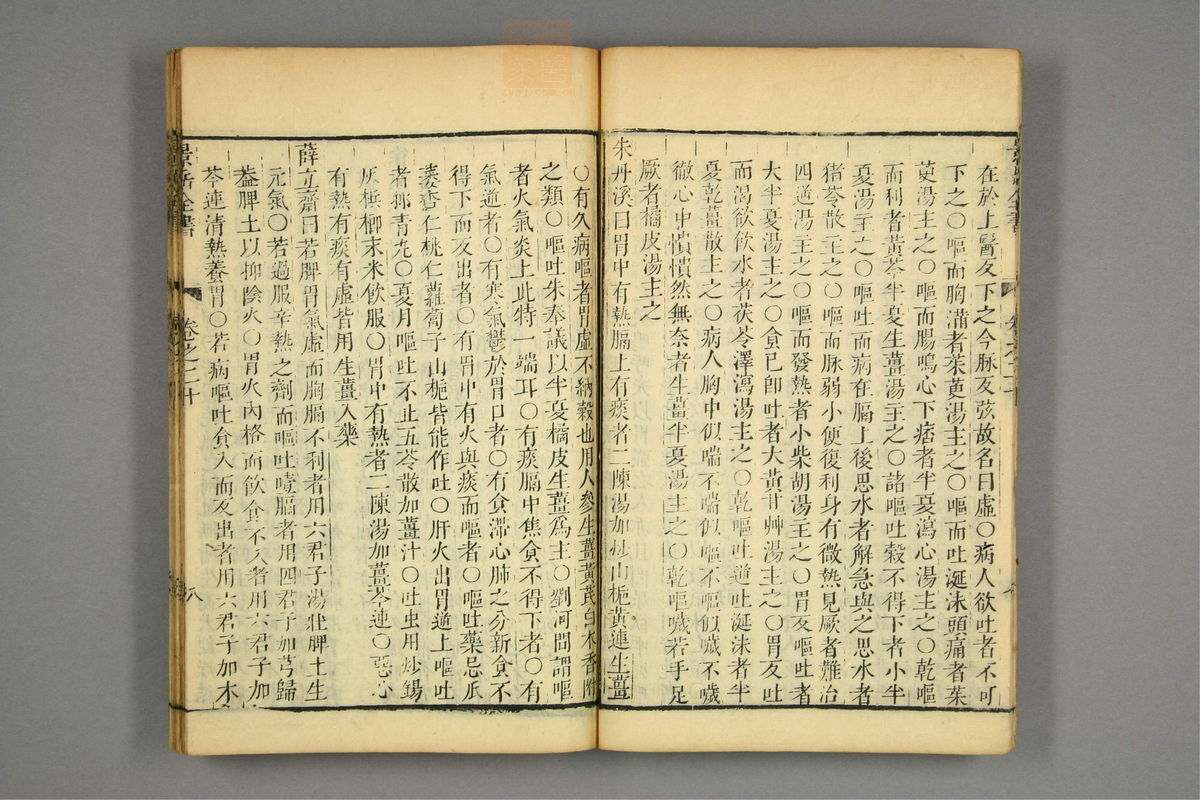 在於上醫反下之今脉反弦故名曰虛○病人欲吐者不可
下之○嘔而胸滿者茱萸湯主之○嘔而吐涎沫頭痛者茱
萸湯主之○嘔而腸鳴心下痞者半夏瀉心湯主之○乾嘔
而利者黃芩半夏生薑湯主之○諸嘔吐穀不得下者小半
夏湯主之○嘔吐而病在膈上後思水者解急與之思水者
猪苓散主之○嘔而脉弱小便復利身有微熱見厥者難治
四逆湯主之○嘔而發熱者小柴胡湯主之○胃反嘔吐者
大半夏湯主之○食已卽吐者大黃甘艸湯主之○胃反吐
而渴欲飲水者茯苓澤瀉湯主之○乾嘔吐逆吐涎沫者半
夏乾薑散主之○病人胸中似喘不喘似嘔不嘔似噦不噦
徹心中憒憒然無奈者生薑半夏湯主之○乾嘔噦若手足
厥者橘皮湯主之
朱丹溪曰胃中有熱膈上有痰者二陳湯加炒山梔黃連生薑
○有久病嘔者胃虛不納穀也用人參生薑黃芪白术香附
之類○嘔吐朱奉議以半夏橘皮生薑爲主○劉河間謂嘔
者火氣炎上此特一端耳○有痰膈中焦食不得下者○有
氣逆者○有寒氣鬱於胃口者○有食滯心肺之分新食不
得下而反出者○有胃中有火與痰而嘔者○嘔吐藥忌瓜
蔞杏仁桃仁蘿蔔子山梔皆能作吐○肝火出胃逆上嘔吐
者抑青丸○夏月嘔吐不止五苓散加薑汁○吐虫用炒錫
灰梹榔末米飲服○胃中有熱者二陳湯加薑芩連○惡心
有熱有痰有虛皆用生薑入藥
薛立齋曰若脾胃氣虛而胸膈不利者用六君子湯壯脾土生
元氣○若過服辛熱之劑而嘔吐噎膈者用四君子加芎歸
益脾土以抑陰火○胃火內格而飲食不入者用六君子加
芩連清熱養胃○若病嘔吐食入而反出者用六君子加木
景岳全書
卷之二十
八